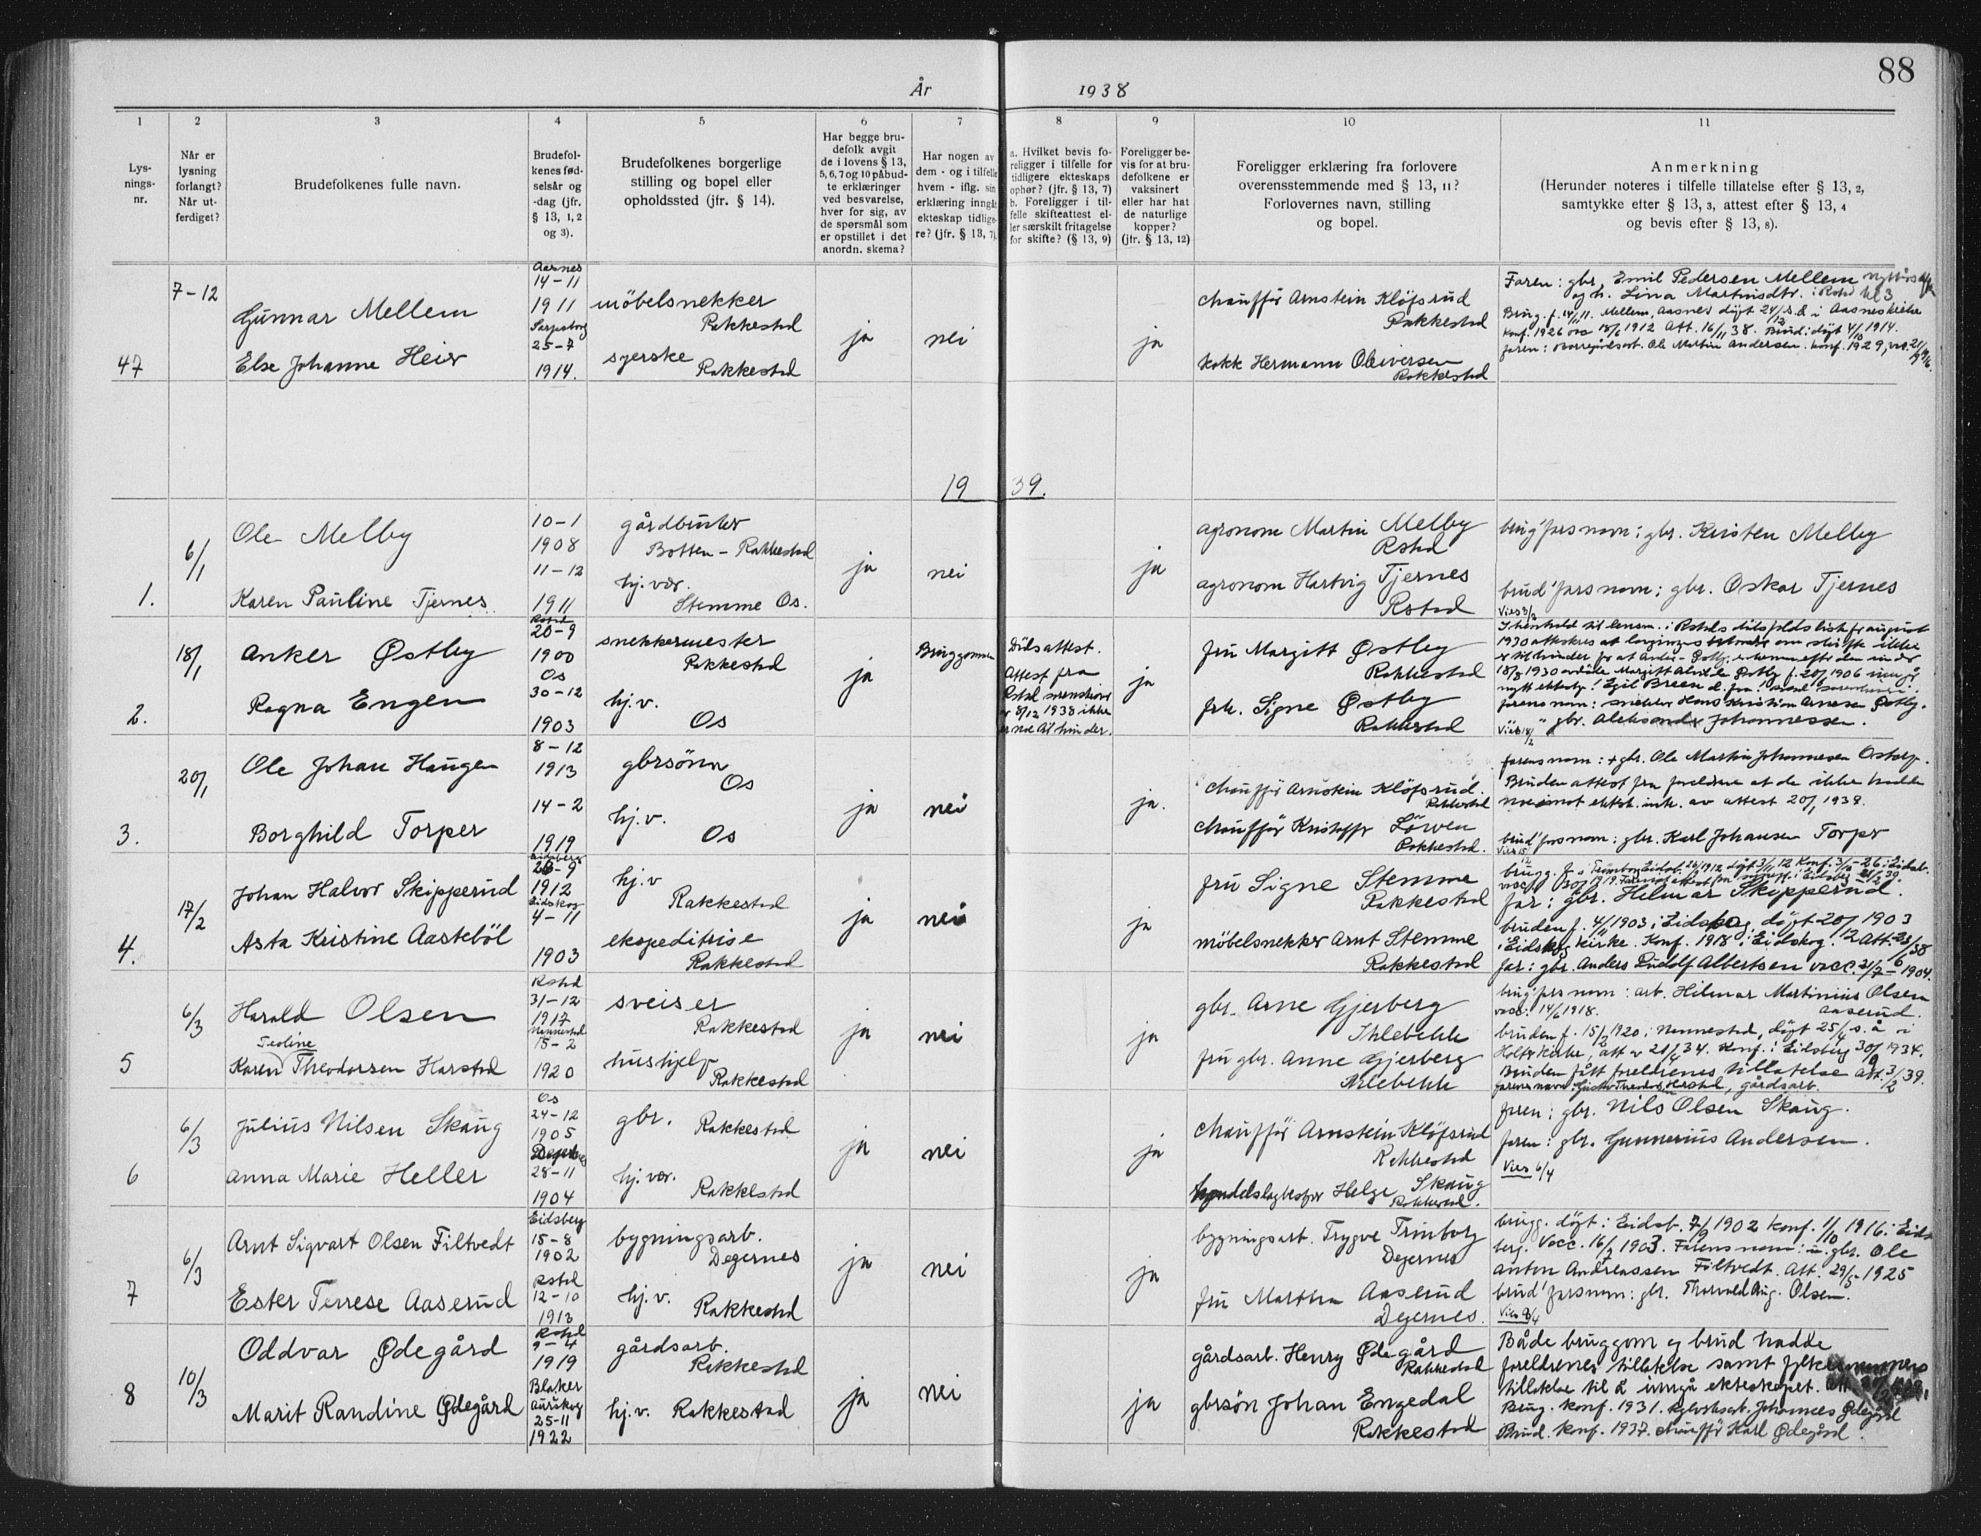 88
År 1938
1 2 3 4 5 6 7 8 9 10 11
Lys-
nings-
nr.
Når er
lysning
forlangt?
Når ut-
ferdiget?
Brudefolkenes fulle navn.
Brudefol-
kenes fød-
selsår og
-dag (jfr.
§ 13, 1, 2
og 3).
Brudefolkenes borgerlige
stilling og bopel eller
opholdssted (jfr. § 14).
Har begge bru-
defolk avgit
de i lovens § 13,
5, 6, 7 og 10 påbud-
te erklæringer
ved besvarelse,
hver for sig, av
de spørsmål som
er opstillet i det
anordn. skema?
Har nogen av
dem - og i tilfelle
hvem - iflg. sin
erklæring inngåt
ekteskap tidlige-
re? (jfr. § 13, 7).
a. Hvilket bevis fo-
religger i tilfelle for
tidligere ekteskaps
ophør? (jfr. § 13, 7)
b. Foreligger i til-
felle skifteattest el-
ler særskilt fritagelse
for skifte? (§ 13, 9)
Foreligger be-
vis for at bru-
defolkene er
vaksinert
eller har hat
de naturlige
kopper?
(jfr. § 13, 12)
Foreligger erklæring fra forlovere
overensstemmende med § 13, 11?
Forlovernes navn, stilling
og bopel.
Anmerkning
(Herunder noteres i tilfelle tillatelse efter § 13, 2,
samtykke efter § 13, 3, attest efter § 13, 4
og bevis efter § 13, 8).
47
7-12
Gunnar Mellem
Else Johanne Heier
Aarnes
14-11
1911
Sarpsborg
25-7
1914.
möbelsnekker
Rakkestad
syerske
Rakkestad
ja
nei
ja
chauffør Arnstein Kløfsrud
Rakkestad
kokk Hermann Oliversen
Rakkestad
Faren: gbr. Emil Pedersen Mellem
og h. Lina Martinsdtr.
Brug. f. 14/11 11. Mellem, Aasnes døpt 24/12 s.å. i Aasnes kirke
Konf. 1926 vac 18/6 1912 Att. 16/11 38. Brud: døpt 4/10 1914.
faren: Ole Martin Andersen. Konf. 1929,
1939.
1.
6/1
Ole Melby
Karen Pauline Tjernes
10-1
1908
11-12
1911
gårdbruker
Botten - Rakkestad
hj. vær.
Stemme Os.
ja
nei
ja
agronom Martin Melby
Rstad
agronom Hartvig Tjernes
Rstad
brug' fars navn: gbr. Kristen Melby
brud' fars navn: gbr. Oskar Tjernes
2.
18/1
Anker Østby
Ragna Engen
Rstad
20-9
1900
Os
30-12
1903
snekkermester
Rakkestad
hj. v.
Os
ja
Bruggommen
Dødsattest.
Attest fra
Rstad sorenskriver
er 8/12 1938 ikke
er noe til hinder.
ja
fru Margitt Østby
Rakkestad
frk. Signe Østby
Rakkestad
Vies 3/2
I henhold til lensm. i Rstads dødsfaldsliste for august
farens navn: snekker Hans Kristian Arnesen Østby.
Vies 18/2 " gbr. Aleksander Johannessen.
3.
20/1
Ole Johan Haugen
Borghild Torper
8-12
1913
14-2
1919
gbrsønn
Os
hj. v.
Os
ja
nei
ja.
chauffør Arnstein Kløfsrud.
Rakkestad
chauffør Kristoffer Løwen
Rakkestad.
farens navn: + gbr. Ole Martin Johannesen
Bruden attest fra foreldrene at de ikke hadde
noe imot ektesk. ink. av attest 20/1 1939.
brud' fars navn: gbr. Karl Johansen Torper
4.
17/2
Johan Halvor Skipperud
Asta Kristine Aastebøl
Eidsberg
26-9
1912
Eidskog
4-11
1903
hj. v
Rakkestad
ekspeditrise
Rakkestad
ja
nei
ja
fru Signe Stemme
Rakkestad
möbelsnekker Arnt Stemme
Rakkestad
far: gbr. Helmar Skipperud.
bruden f. 4/11 1903 i Eidskog, døpt 20/12 1903
i Eidskog kirke. Konf. 1918 i Eidskog. Att. 23/6 38
far: gbr. Anders Ludolf Albertsen vacc. 21/7-1904.
5
6/3
Harald Olsen
Teoline
Karen Theodorsen Harstad
Rstad
31-12
1917
Nennestad
15-2
1920
sveiser
Rakkestad
hushjelp
Rakkestad
ja
nei
ja
gbr. Arne Gjerberg
Ihlebekk
fru gbr. Anne Gjerberg
Ihlebekk
brug' fars navn: arb. Hilmar Martinius Olsen
vacc. 14/6 1918. Aaserud.
bruden f. 15/2 1920 i Nennestad, døpt 25/4 s. å i
Holt kirke, att v 21/4 34. Konf. i Eidsberg 30/9 1934.
Bruden fått foreldrenes tillatelse att. 3/2 39.
6
6/3
Julius Nilsen Skaug
Anna Marie Heller
Os
24-12
1905
Degernes
28-11
1904
gbr.
Rakkestad
hj. vær.
Rakkestad
ja
nei
ja
chauffør Arnstein Kløfsrud
Rakkestad
Helge Skaug
Rakkestad.
faren: gbr. Nils Olsen Skaug.
faren: gbr. Gunnerius Andersen.
Vies 6/4
7
6/3
Arnt Sigvart Olsen Filtvedt
Ester Terrese Aaserud
Eidsberg
15-8
1902
Rstad
12-10
1913
bygningsarb.
Degernes
hj. v.
Rakkestad
ja
nei
ja
bygningsarb. Trygve Trinborg
Degernes
fru Martha Aaserud
Degernes.
brugg. døpt i Eidsb. 7/9 1902 Konf. 1/10 1916 i Eids-
berg. Vacc. 16/2 1903. Farens navn: gbr. Ole
Anton Andreassen Filtvedt. Att. 29/5-1925
brud' fars navn: gbr. Thorvald Aug. Olsen.
8
10/3
Oddvar Ødegård
Marit Randine Ødegård
Rstad
9-4
1919
Blaker
Aurskog
25-11
1922
gårdsarb.
Rakkestad
hj. v. Rakkestad
ja
nei
ja
gårdsarb. Henry Ødegård
Rakkestad
gbrsøn Johan Engedal
Rakkestad
Både bruggom og brud hadde
foreldrenes tillatelse samt fylkesmannens
tillatelse til å inngå ekteskapet.
Brug. konf. 1931. Johannes Ødegård
Brud. konf. 1937. chauffør Karl Ødegård.